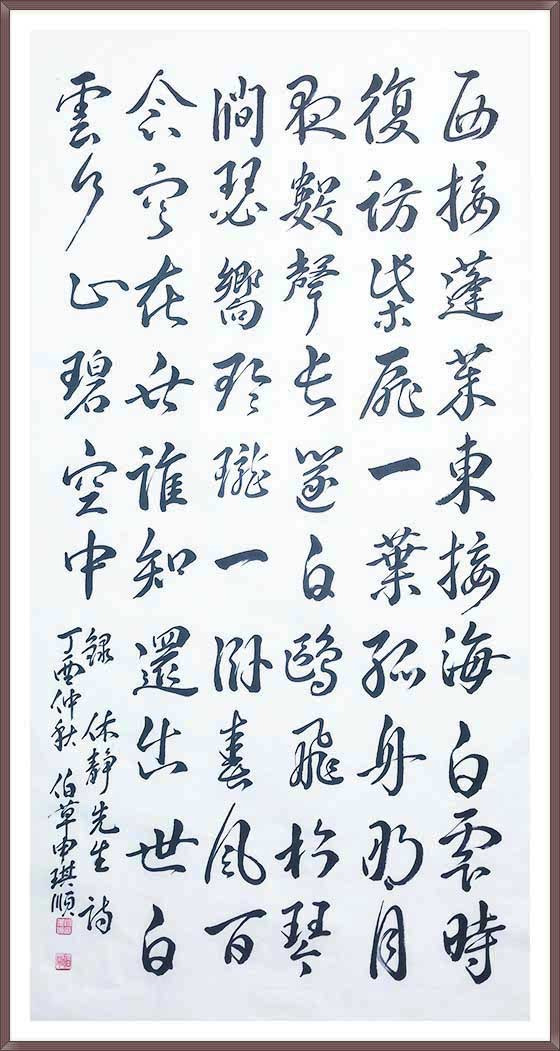 西接蓬萊東接海白雲時
復訪柴扉一葉孤舟明月
夜數聲長篴白鷗飛松琴
澗瑟響玲瓏一臥春風百
念空在世誰知還出世白
雲碧空中
錄 休靜先生詩
丁酉仲秋 伯草申琪順